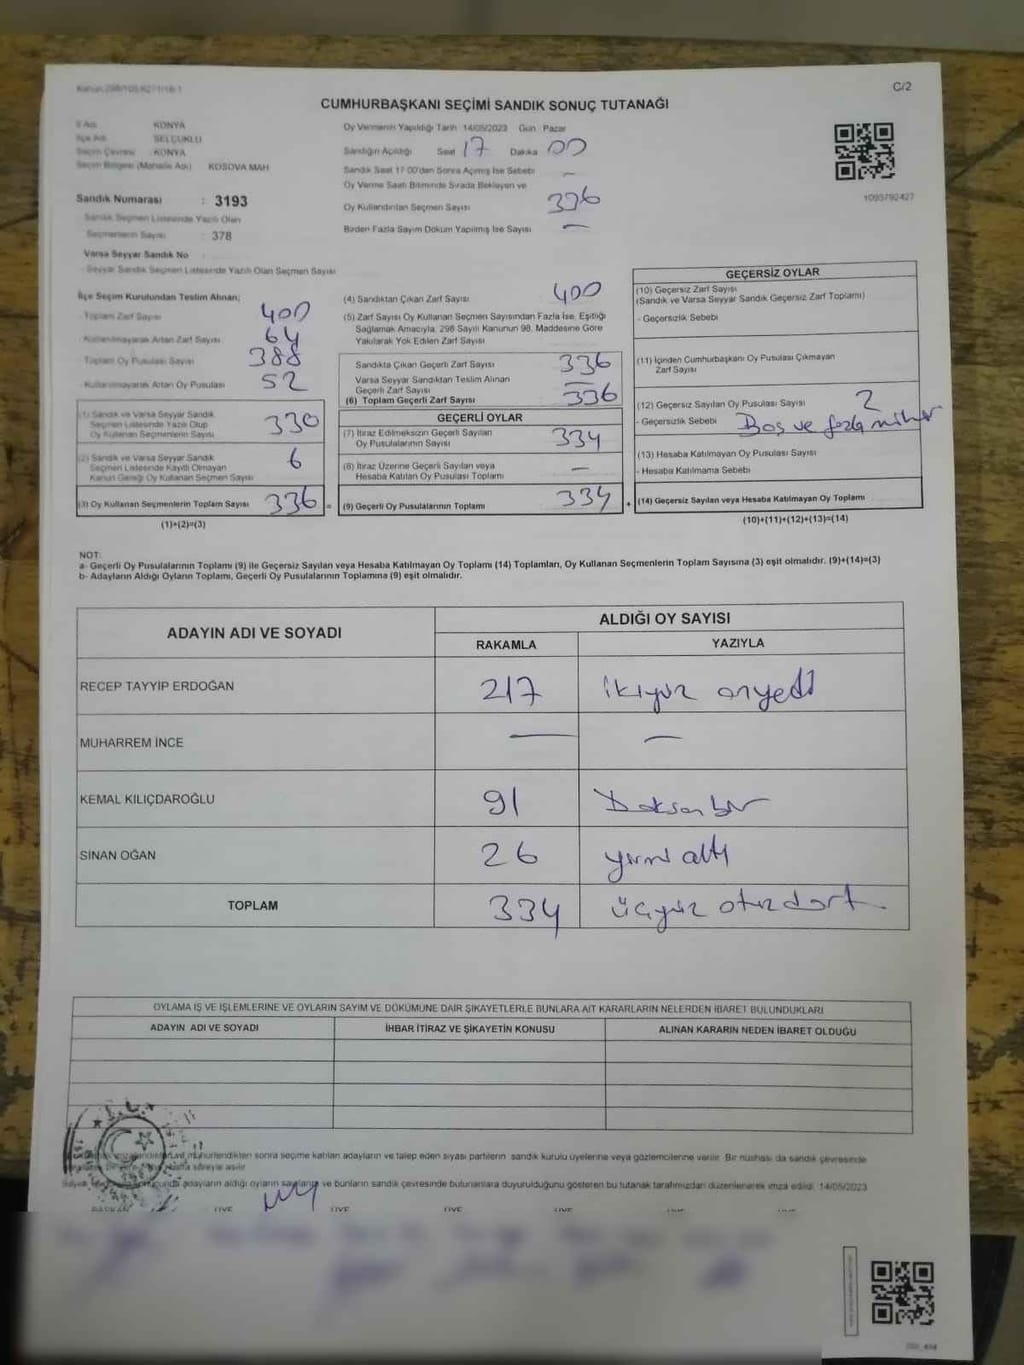 Kanun:298/105/6271/18-1
C/2
CUMHURBAŞKANI SEÇİMİ SANDIK SONUÇ TUTANAĞI
İl Adı KONYA
İlçe Adı SELÇUKLU
Seçim Çevresi KONYA
Seçim Bölgesi (Mahalle Adı) KOSOVA MAH
Sandık Numarası : 3193
Sandık Seçmen Listesinde Yazılı Olan
Seçmenlerin Sayısı : 378
Varsa Seyyar Sandık No
Seyyar Sandık Seçmen Listesinde Yazılı Olan Seçmen Sayısı
Oy Vermenin Yapıldığı Tarih 14/05/2023 Gün Pazar
Sandığın Açıldığı Saat 17 Dakika 00
Sandık Saat 17:00'dan Sonra Açılmış İse Sebebi —
Oy Verme Saati Bitiminde Sırada Bekleyen ve
Oy Kullandırılan Seçmen Sayısı 336
Birden Fazla Sayım Döküm Yapılmış İse Sayısı —
1093792427
İlçe Seçim Kurulundan Teslim Alınan;
Toplam Zarf Sayısı 400
Kullanılmayarak Artan Zarf Sayısı 64
Toplam Oy Pusulası Sayısı 388
Kullanılmayarak Artan Oy Pusulası 52
(1) Sandık ve Varsa Seyyar Sandık
Seçmen Listesinde Yazılı Olup
Oy Kullanan Seçmenlerin Sayısı 330
(2) Sandık ve Varsa Seyyar Sandık
Seçmen Listesinde Kayıtlı Olmayan
Kanun Gereği Oy Kullanan Seçmen Sayısı 6
(3) Oy Kullanan Seçmenlerin Toplam Sayısı 336 =
(1)+(2)=(3)
(4) Sandıktan Çıkan Zarf Sayısı 400
(5) Zarf Sayısı Oy Kullanan Seçmen Sayısından Fazla İse, Eşitliği
Sağlamak Amacıyla, 298 Sayılı Kanunun 98. Maddesine Göre
Yakılarak Yok Edilen Zarf Sayısı
Sandıkta Çıkan Geçerli Zarf Sayısı 336
Varsa Seyyar Sandıktan Teslim Alınan
Geçerli Zarf Sayısı —
(6) Toplam Geçerli Zarf Sayısı 336
GEÇERLİ OYLAR
(7) İtiraz Edilmeksizin Geçerli Sayılan
Oy Pusulalarının Sayısı 334
(8) İtiraz Üzerine Geçerli Sayılan veya
Hesaba Katılan Oy Pusulası Toplamı —
(9) Geçerli Oy Pusulalarının Toplamı 334 +
GEÇERSİZ OYLAR
(10) Geçersiz Zarf Sayısı
(Sandık ve Varsa Seyyar Sandık Geçersiz Zarf Toplamı)
- Geçersizlik Sebebi
(11) İçinden Cumhurbaşkanı Oy Pusulası Çıkmayan
Zarf Sayısı
(12) Geçersiz Sayılan Oy Pusulası Sayısı 2
- Geçersizlik Sebebi Boş ve fazla mühür
(13) Hesaba Katılmayan Oy Pusulası Sayısı
- Hesaba Katılmama Sebebi
(14) Geçersiz Sayılan veya Hesaba Katılmayan Oy Toplamı
(10)+(11)+(12)+(13)=(14)
NOT:
a- Geçerli Oy Pusulalarının Toplamı (9) ile Geçersiz Sayılan veya Hesaba Katılmayan Oy Toplamı (14) Toplamları, Oy Kullanan Seçmenlerin Toplam Sayısına (3) eşit olmalıdır. (9)+(14)=(3)
b- Adayların Aldığı Oyların Toplamı, Geçerli Oy Pusulalarının Toplamına (9) eşit olmalıdır.
ADAYIN ADI VE SOYADI
ALDIĞI OY SAYISI
RAKAMLA YAZIYLA
RECEP TAYYİP ERDOĞAN 217 ikiyüz onyedi
MUHARREM İNCE — —
KEMAL KILIÇDAROĞLU 91 Doksanbir
SİNAN OĞAN 26 yirmi altı
TOPLAM 334 üçyüz otuz dört
OYLAMA İŞ VE İŞLEMLERİNE VE OYLARIN SAYIM VE DÖKÜMÜNE DAİR ŞİKAYETLERLE BUNLARA AİT KARARLARIN NELERDEN İBARET BULUNDUKLARI
ADAYIN ADI VE SOYADI İHBAR İTİRAZ VE ŞİKAYETİN KONUSU ALINAN KARARIN NEDEN İBARET OLDUĞU
T.C.
mühürlendikten sonra seçime katılan adayların ve talep eden siyasi partilerin sandık kurulu üyelerine veya gözlemcilerine verilir. Bir nüshası da sandık çevresinde
süreyle asılır
adayların aldığı oyların sayılarını ve bunların sandık çevresinde bulunanlara duyurulduğunu gösteren bu tutanak tarafımızdan düzenlenerek imza edildi. 14/05/2023
BAŞKAN ÜYE ÜYE ÜYE ÜYE ÜYE ÜYE